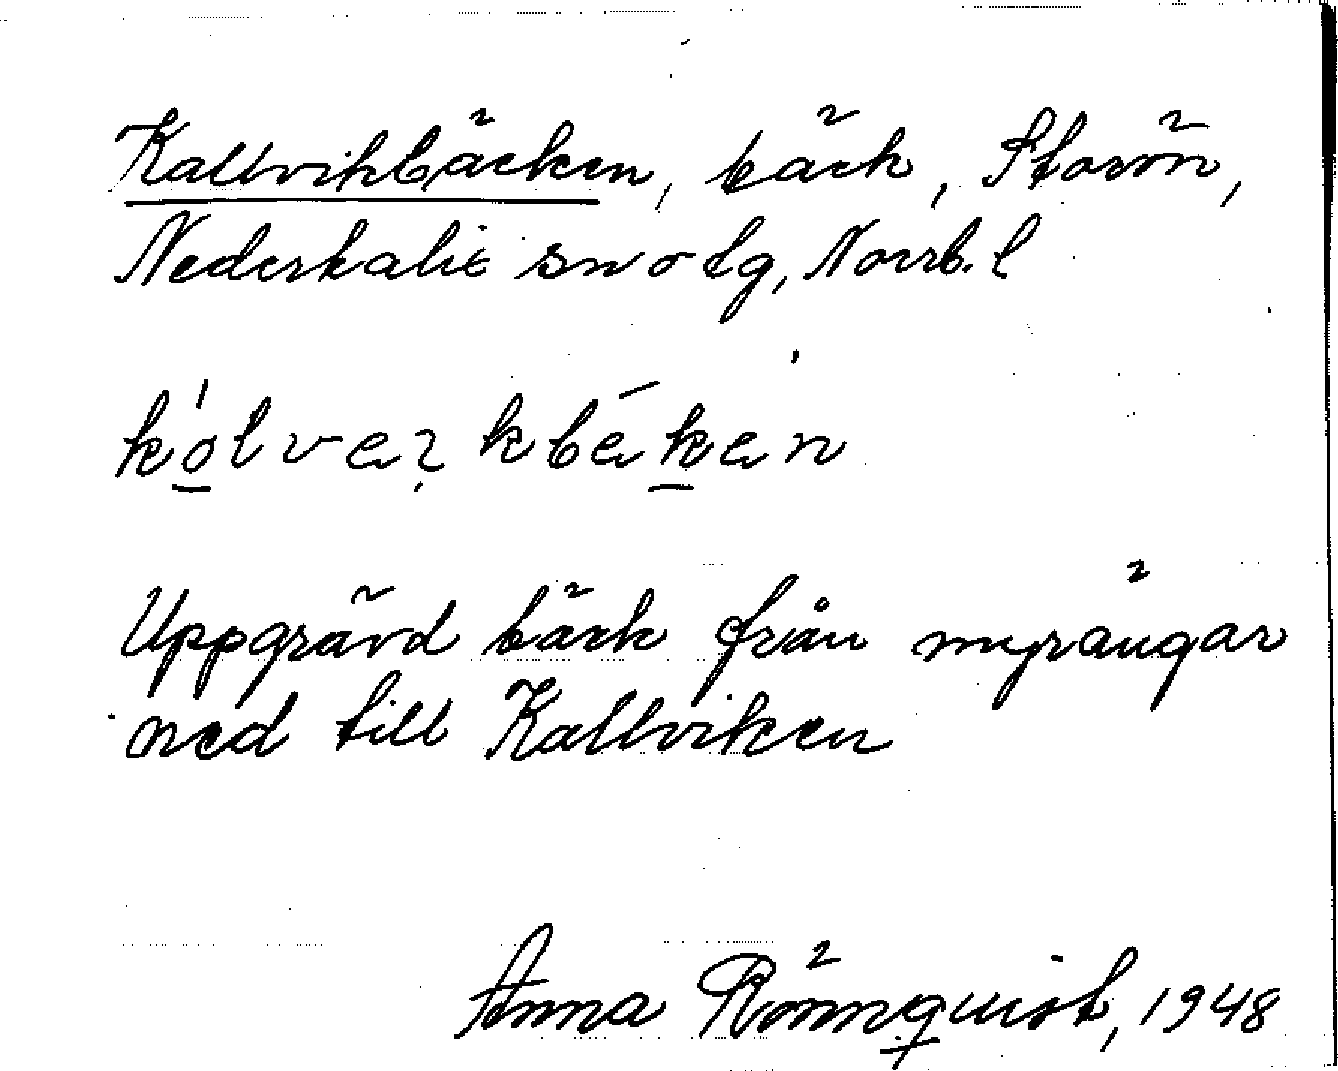 Kallvikbäcken, bäck, Storön,
Nederkalix sn o tg, Norrb. l
Uppgrävd bäck från myrängar
ned till Kallviken
Anna Rönnquist, 1948